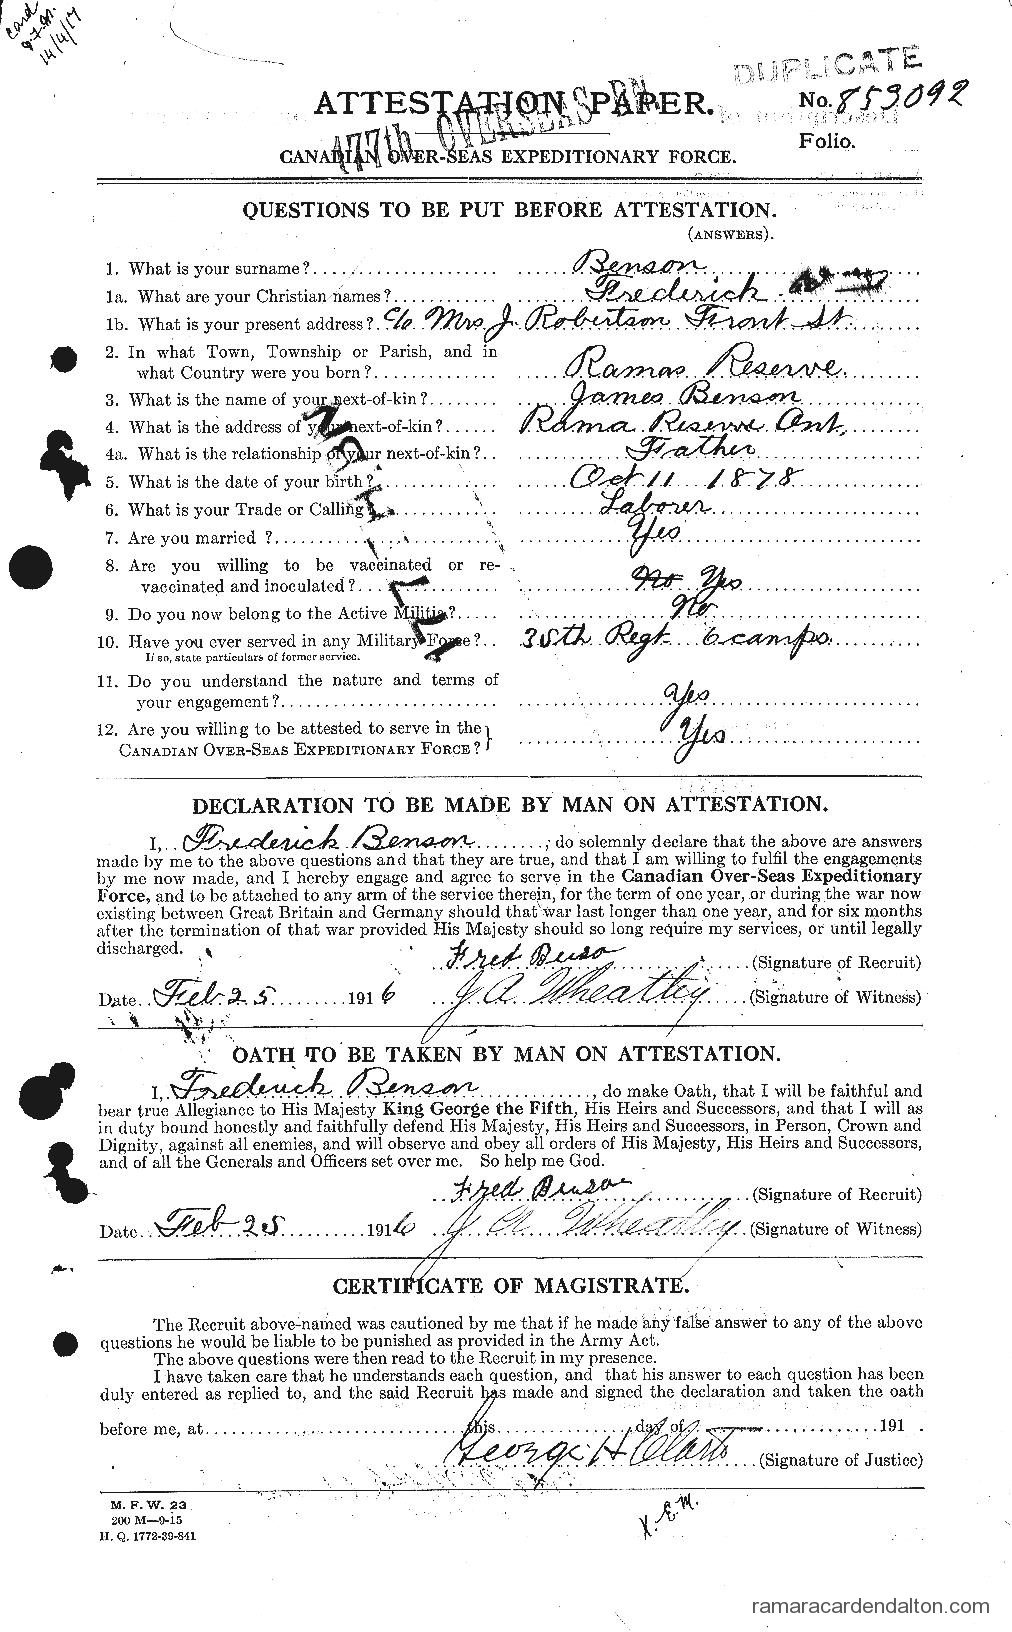 card
14/4/17
DUPLICATE
ATTESTATION PAPER.
No. 853092
177th OVERSEAS BN.
Folio.
CANADIAN OVER-SEAS EXPEDITIONARY FORCE.
QUESTIONS TO BE PUT BEFORE ATTESTATION.
(ANSWERS).
1. What is your surname? Benson
1a. What are your Christian names? Frederick
1b. What is your present address? c/o Mrs J. Robertson Front St.
2. In what Town, Township or Parish, and in
what Country were you born? Ramas Reserve
3. What is the name of your next-of-kin? James Benson
4. What is the address of your next-of-kin? Rama Reserve Ont,
4a. What is the relationship of your next-of-kin? Father
5. What is the date of your birth? Oct 11 1878
6. What is your Trade or Calling Laborer
7. Are you married ? Yes
8. Are you willing to be vaccinated or re-
vaccinated and inoculated? No Yes
9. Do you now belong to the Active Militia? No
10. Have you ever served in any Military Force? 35th Regt 6 camps.
If so, state particulars of former service.
11. Do you understand the nature and terms of
your engagement? Yes
12. Are you willing to be attested to serve in the
CANADIAN OVER-SEAS EXPEDITIONARY FORCE? Yes
DECLARATION TO BE MADE BY MAN ON ATTESTATION.
I, Frederick Benson, do solemnly declare that the above are answers
made by me to the above questions and that they are true, and that I am willing to fulfil the engagements
by me now made, and I hereby engage and agree to serve in the Canadian Over-Seas Expeditionary
Force, and to be attached to any arm of the service therein, for the term of one year, or during the war now
existing between Great Britain and Germany should that war last longer than one year, and for six months
after the termination of that war provided His Majesty should so long require my services, or until legally
discharged.
Fred Benso (Signature of Recruit)
Date Feb 25 1916 J A Wheatley (Signature of Witness)
OATH TO BE TAKEN BY MAN ON ATTESTATION.
I, Frederick Benson, do make Oath, that I will be faithful and
bear true Allegiance to His Majesty King George the Fifth, His Heirs and Successors, and that I will as
in duty bound honestly and faithfully defend His Majesty, His Heirs and Successors, in Person, Crown and
Dignity, against all enemies, and will observe and obey all orders of His Majesty, His Heirs and Successors,
and of all the Generals and Officers set over me. So help me God.
Fred Benson (Signature of Recruit)
Date Feb 25 1916 J A Wheatley (Signature of Witness)
CERTIFICATE OF MAGISTRATE.
The Recruit above-named was cautioned by me that if he made any false answer to any of the above
questions he would be liable to be punished as provided in the Army Act.
The above questions were then read to the Recruit in my presence.
I have taken care that he understands each question, and that his answer to each question has been
duly entered as replied to, and the said Recruit has made and signed the declaration and taken the oath
before me, at this day of 191 .
George H Clark (Signature of Justice)
M. F. W. 23
200 M—9-15
H. Q. 1772-39-841
X.E.M.
ramaracardendalton.com